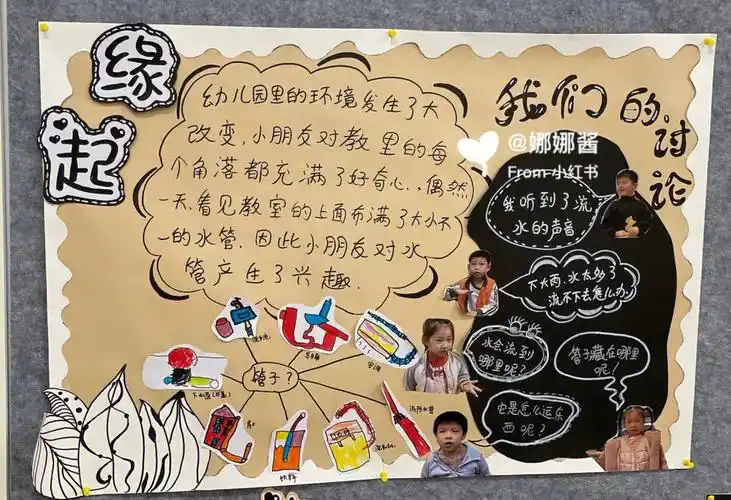 缘
起
幼儿园里的环境发生了大
改变,小朋友对教里的每
个角落都充满了好奇心,偶然
一天,看见教室的上面布满了大小不
一的水管.因此小朋友对水
管产生了兴趣.
我们的讨论
@娜娜酱
From 小红书
我听到了流
水的声音
下大雨,水太多了
流不下去怎么办.
水会流到
哪里呢?
管子藏在哪里
呢!
也是这么运东
西呢?
管子?
饮料